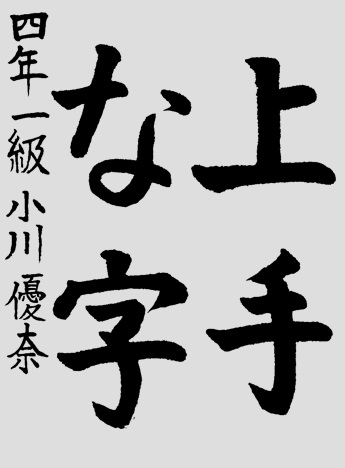 上手
な字
四年一級 小川優奈